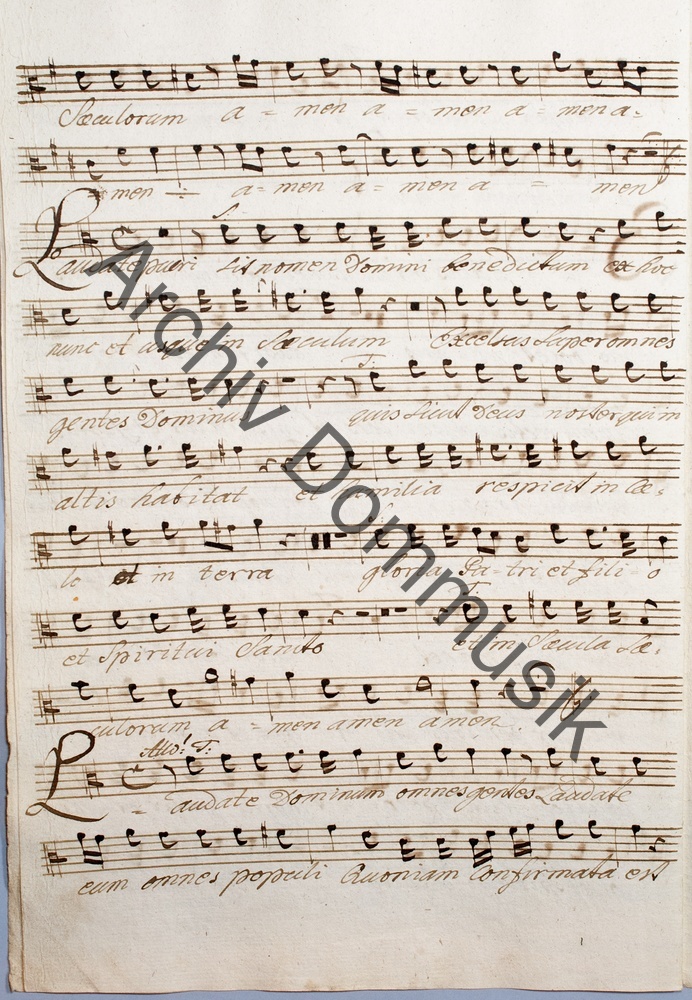 Sæculorum a = men a = men a = men a =
= men ÷ a = men a = men a = men
Laudate pueri sit nomen Domini benedictum ex hoc
nunc et usque in Sæculum Excelsus Super omnes
T:
gentes Dominus quis sicut Deus noster qui in
altis habitat et humilia respicit in Cæ =
lo et in terra gloria Pa - tri et fili - o
et Spiritui Sancto et in Sæcula Sæ =
culorum a - men amen amen.
Allo: T:
Laudate Dominum omnes gentes Laudate
eum omnes populi Quoniam Confirmata est
Archiv Dommusik